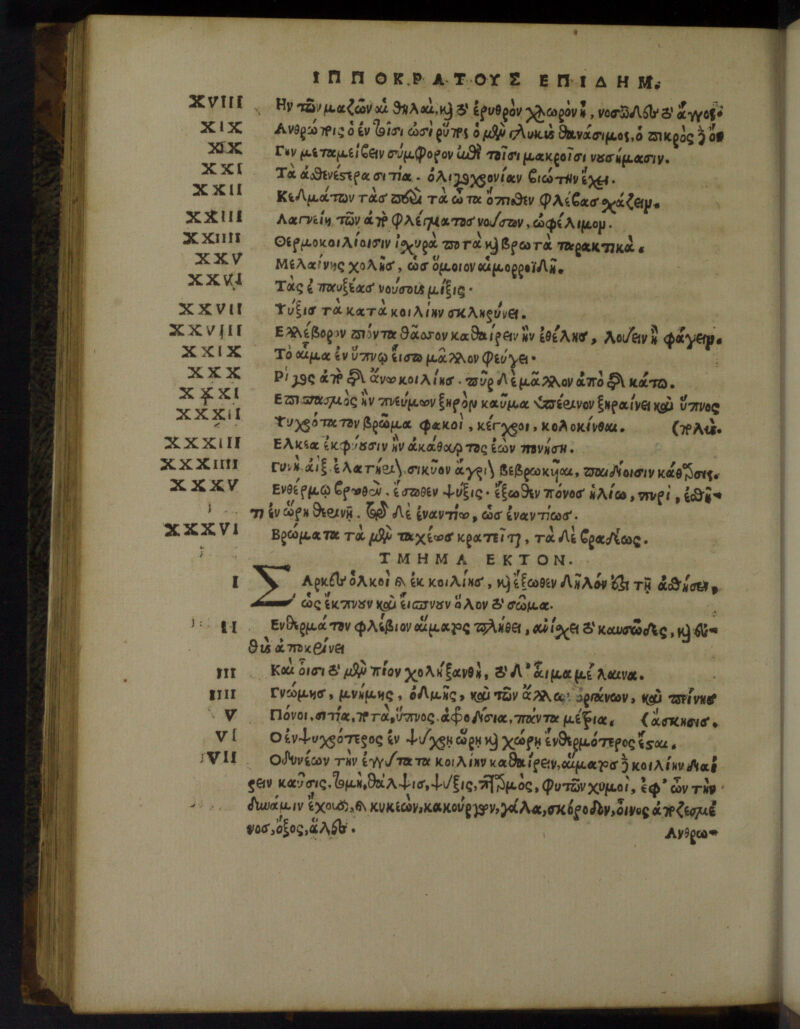 ΙΠΠΟΚΡΑΤΟΥΣ ΕΠΙΔΗΜ.
XVIII Ην τῶν μαζῶν αἱ θηλαὶ, καὶ τὸ ἐρυθρὸν χλωρὸν ᾖ, νοσῶδες τὸ ἄγγος.
XIX Ανθρώποις ὁ ἐν τοῖσι ὠσὶ ῥύπος ὁ μὲν γλυκὺς θανάσιμος, ὁ πικρὸς δὲ οὔ
XX Γῆν μεταμείβειν σύμφορον ἐπὶ τοῖσι μακροῖσι νουσήμασιν.
XXI Τὰ ἀσθενέστερα σιτία. ὀλιγοχρονίαν βιωτὴν ἔχει.
XXII Κεδμάτων τὰς παρὰ τὰ ὦτα ὄπισθεν φλέβας σχάζειν.
XXIII Λαγνείη τῶν ἀπὸ φλέγματος νούσων, ὠφέλιμον.
XXIIII Θερμοκοιλίοισιν ἰσχυρὰ ποτὰ καὶ βρωτὰ ταρακτικά.
XXV Μελαίνης χολῆς, ὡς ὅμοιον αἱμορροΐδη.
XXVI Τὰς νούσους μίξις.
XXVII Ψύξις τὰ κατὰ κοιλίην σκληρύνει.
XXVIII Ἐλλέβορον πιόντα θᾶσσον καθαίρειν ἢν ἐθέλῃς, λούειν ἢ φάγειν.
XXIX Τὸ αἷμα ἐν ὕπνῳ εἴσω μᾶλλον φεύγει.
XXX Ρίγος ἀπὸ τῆς ἄνω κοιλίης. πῦρ δὲ μᾶλλον ἀπὸ τῆς κάτω.
XXXI Ἐπισπασμὸς ἢν πνεύμων ξηρὸν καῦμα ξηραίνει καὶ ὕπνος
XXXII Ψυχρότατον βρῶμα φακοὶ, κέγχροι, κολοκίνθαι.
XXXIII Ἕλκεα ἐκφύουσιν ἢν ἀκάθαρτος ἐὼν πονήσῃ.
XXXIIII Γυνὴ αἲξ ἐλατηρίου, σικύου ἀγρίου βεβρωκυῖαι, παιδίοισιν κάθαρσις.
XXXV Ἐνθέρμῳ ἔσωθεν ψύξις. ἔξωθεν πόνος ἡλίῳ, πυρὶ, ἐσθῆ-
τι ἐν ὥρῃ θερινῇ. τὸ δὲ ἐναντίῳ, ὡς ἐναντίως.
XXXVI Βρώματα τὰ μὲν ταχέως κρατεῖται, τὰ δὲ βραδέως.
ΤΜΗΜΑ ΕΚΤΟΝ.
I Σαρκες ὁλκοὶ ἐκ κοιλίης, καὶ ἔξωθεν δῆλον ἐπὶ τῇ αἰσθήσει,
ὡς ἔκπνουν καὶ εἴσπνουν ὅλον τὸ σῶμα.
II Ἐνθερμότερον φλέβιον αἵματος πλήθει, ἀνίσχει τὸ καυσῶδες, καὶ εὐ-
θὺς ἀποκρίνει
III Καὶ οἷσι τὸ μὲν πῖον χολὴ ξανθὴ, τὸ δ' αἷμα μέλαινα.
IIII Γνώμης, μνήμης, ὀδμῆς, καὶ τῶν ἄλλων ὀργάνων, καὶ πείνης
V Πόνοι, σιτία, ποτὰ, ὕπνος, ἀφροδίσια, πάντα μέτρια. (ἄσκησις.
VI Ὁ ἐνψυχρότερος ἐν ψυχρῇ ὥρῃ καὶ χώρῃ ἐνθερμότερος ἔσται.
VII Ὀδυνέων τὴν ἐγγύτατα κοιλίην καθαίρειν, αἵματος δὲ κοιλίην διαι-
ρειν καῦσις, τομὴ, θάλψις, ψύξις, πταρμὸς, φυτῶν χυμοὶ, ἐφ' ὧν τὴν
δύναμιν ἔχουσι, κυκεών, κακούργων, γάλα, σκόροδον, οἶνος ἀπεζεσμέ
νος, ὄξος, ἅλες.
Ανθρω-